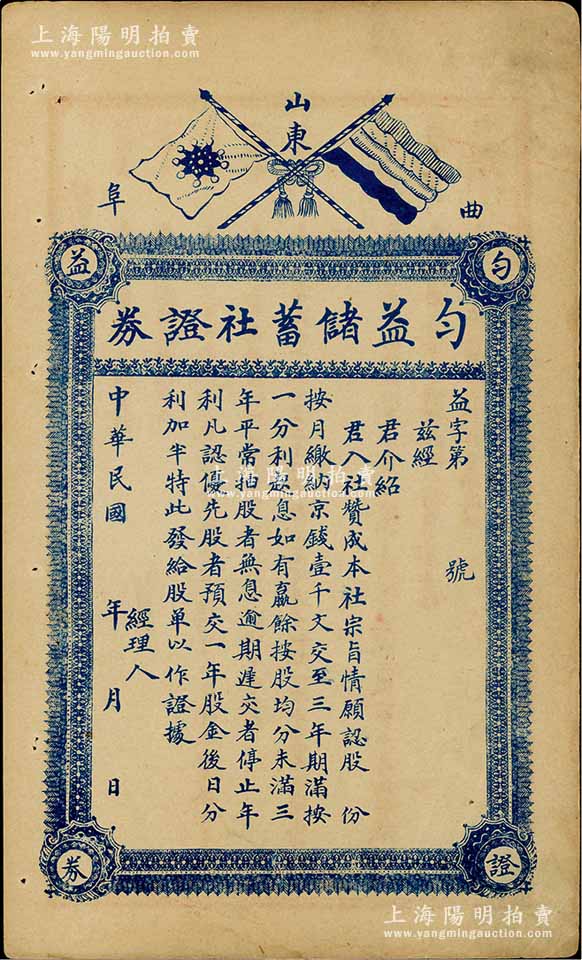 上海陽明拍賣
www.yangmingauction.com
山東
曲阜
勻益證券
勻益儲蓄社證券
益字第 號
茲經
君介紹
君入社贊成本社宗旨情願認股 份
按月繳納京錢壹千文交至三年期滿按
一分利扱息如有贏餘按股均分未滿三
年平常抽股者無息逾期遲交者停止年
利凡認優先股者預交一年股金後日分
利加半特此發給股单以作證據
經理人
中華民國 年 月 日
上海陽明拍賣
www.yangmingauction.com
上海陽明拍賣
www.yangmingauction.com